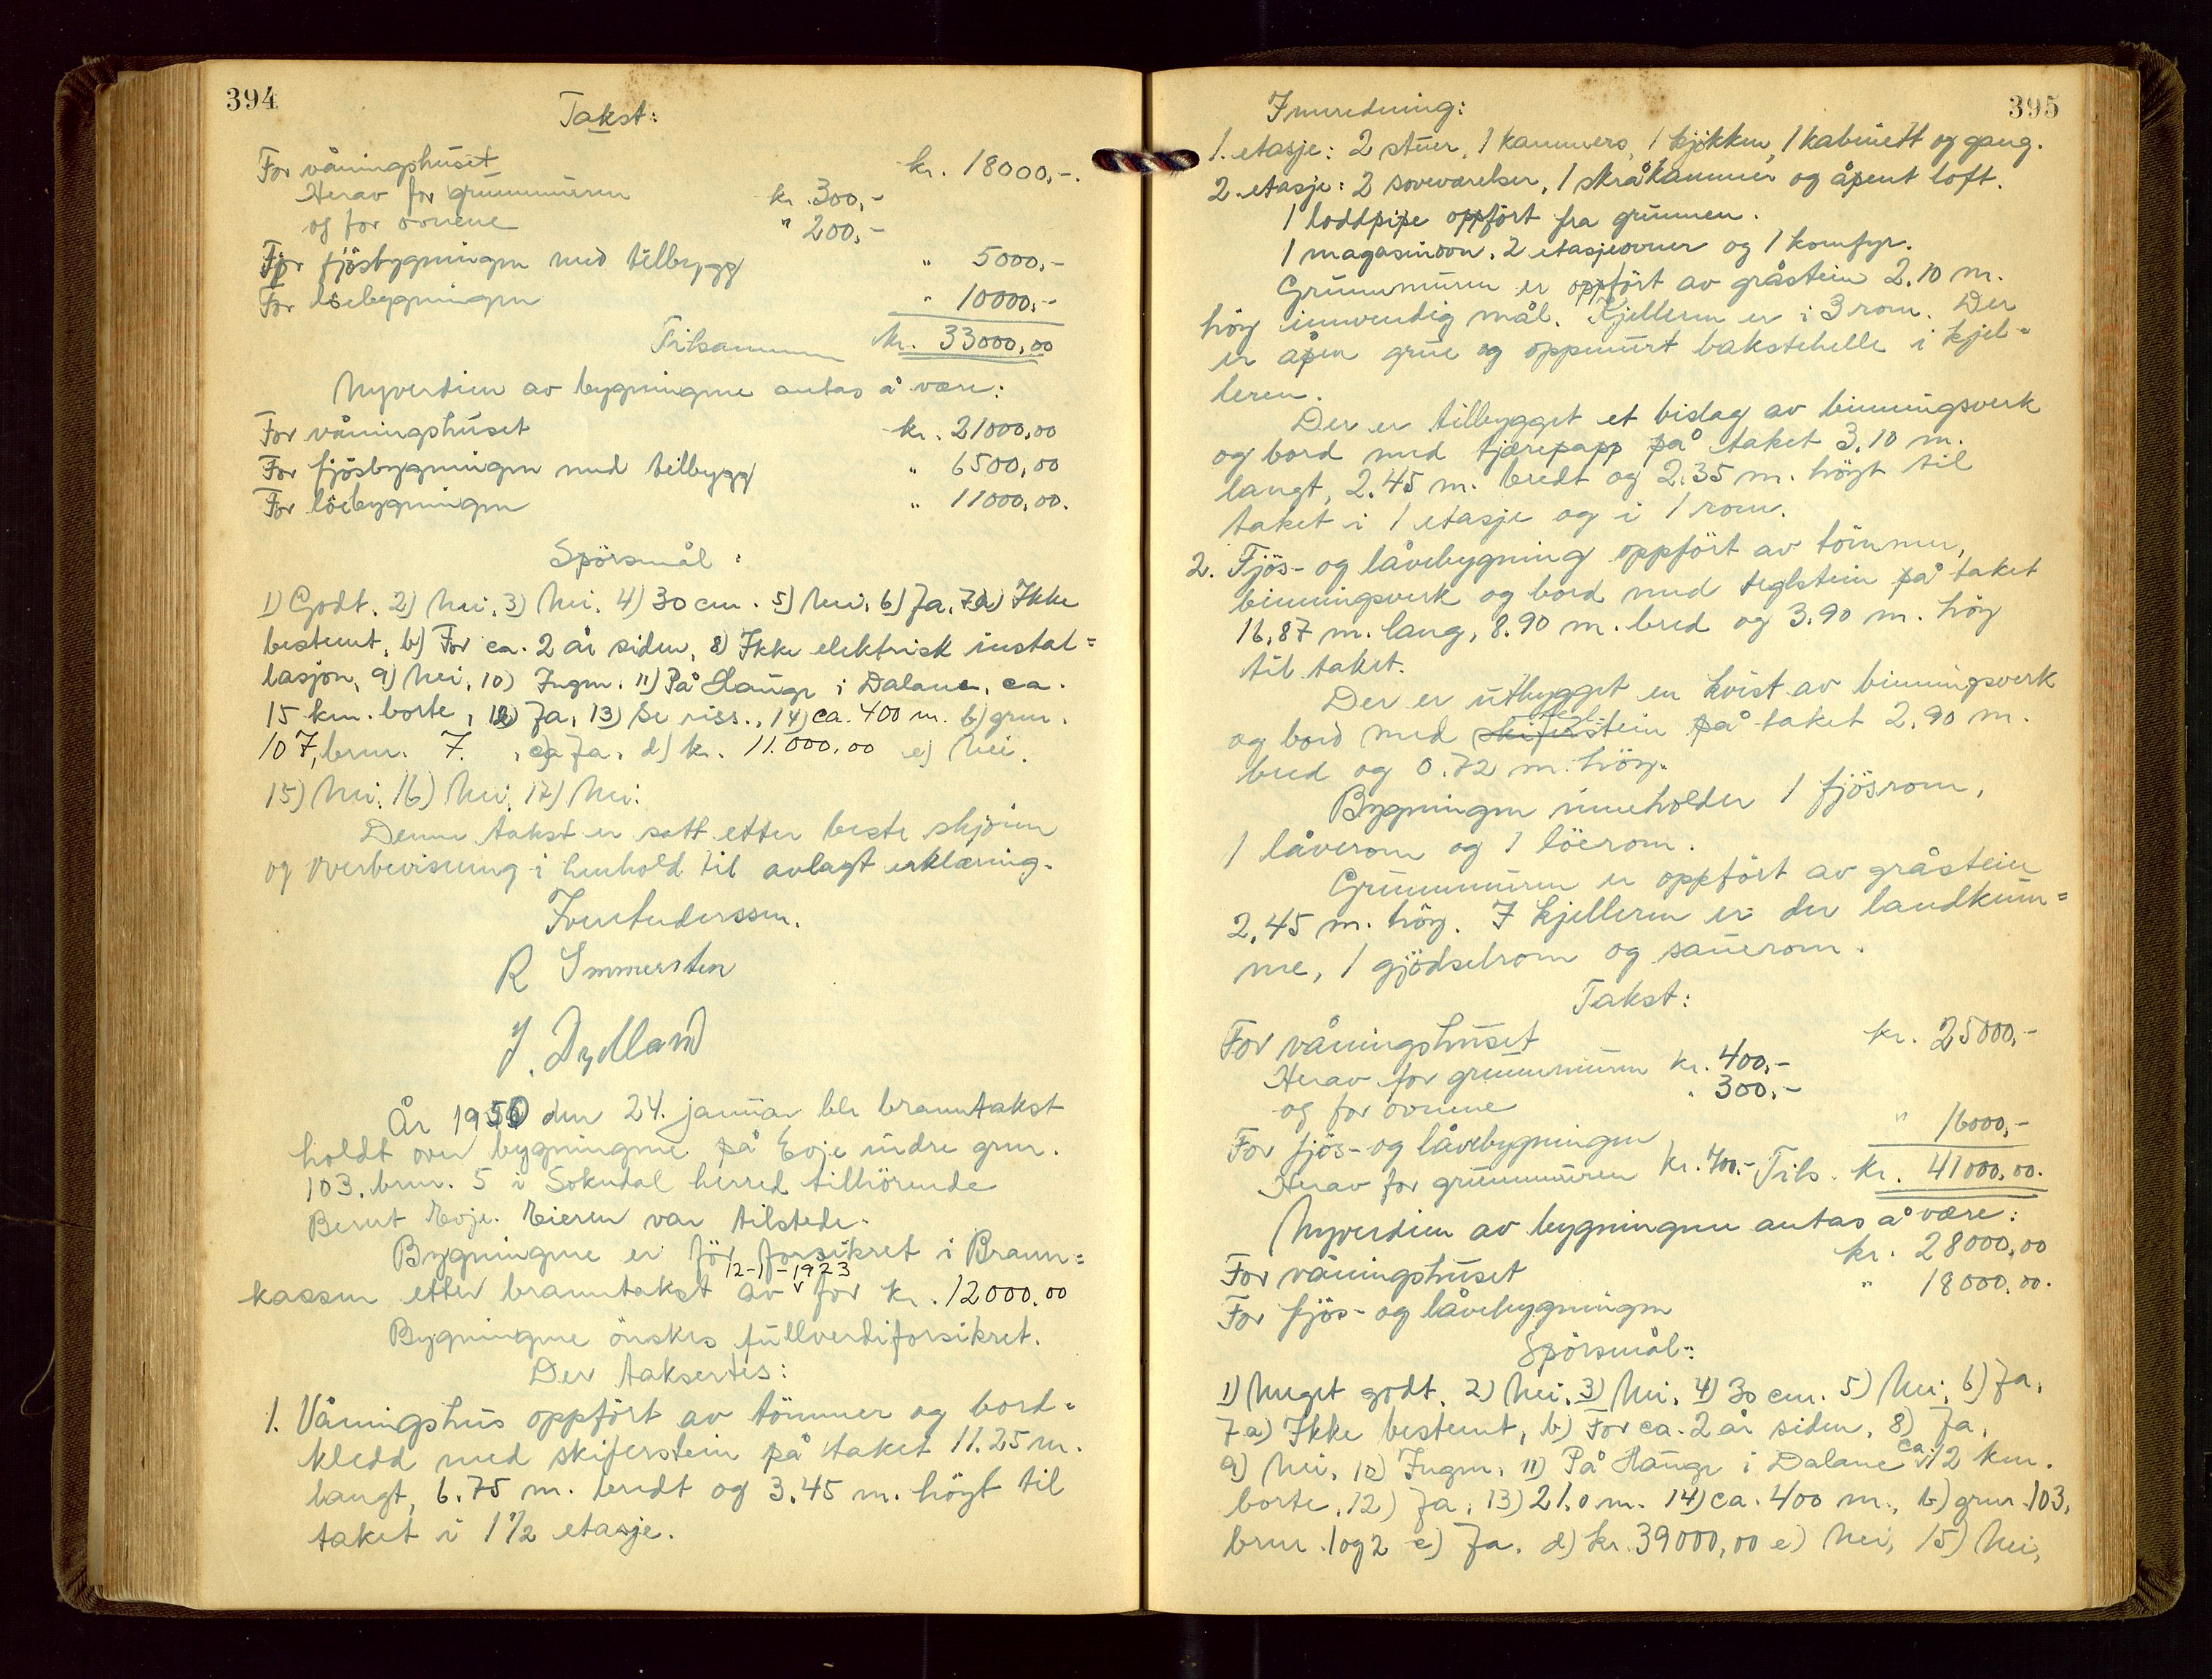 394
Takst:
For våningshuset kr. 18000,-.
Herav for grunnmuren kr. 300,-
og for ovnene " 200,-
For fjösbygningen med tilbygg " 5000,-
For löebygningen " 10000,-
Tilsammen kr. 33000,00
Nyverdien av bygningene antas å være:
For våningshuset kr. 21000,00
For fjösbygningen med tilbygg " 6500,00
For löebygningen " 11000,00.
Spörsmål:
1) Godt. 2) Nei. 3) Nei. 4) 30 cm. 5) Nei. 6) Ja. 7a) Ikke
bestemt, b) For ca. 2 år siden, 8) Ikke elektrisk instal=
lasjon, 9) Nei, 10) Ingen. 11) På Hauge i Dalane, ca.
15 km. borte, 12) Ja, 13) Se riss., 14) ca. 400 m. b) grnr.
107, brnr. 7. , c) Ja, d) kr. 11.000,00 e) Nei.
15) Nei. 16) Nei. 17) Nei.
Denne takst er satt etter beste skjönn
og overbevisning i henhold til avlagt erklæring.
Iver Anderssen.
R Immersten
J. Dydland
År 1950 den 24. januar ble branntakst
holdt over bygningene på Evje indre grnr.
103, brnr. 5 i Sokndal herred tilhörende
Bernt Evje. Eieren var tilstede.
Bygningene er för forsikret i Brann=
12-1-1923
kassen etter branntakst av v for kr. 12000,00
Bygningene önskes fullverdiforsikret.
Der taksertes:
1. Våningshus oppfört av tömmer og bord=
kledd med skiferstein på taket 11.25 m.
langt, 6.75 m. bredt og 3.45 m. höyt til
taket i 1 1/2 etasje.
395
Innredning:
1. etasje: 2 stuer, 1 kammers, 1 kjökken, 1 kabinett og gang.
2. etasje: 2 soveværelser, 1 skråkammer og åpent loft.
1 loddpipe oppfört fra grunnen.
1 magasinovn, 2 etasjeovner og 1 komfyr.
Grunnmuren er oppfört av gråstein 2.10 m.
höy innvendig mål. Kjelleren er i 3 rom. Der
er åpen grue og oppmurt bakstehelle i kjel=
leren.
Der er tilbygget et bislag av binningsverk
og bord med tjærepapp på taket 3.10 m.
langt, 2.45 m. bredt og 2.35 m. höyt til
taket i 1 etasje og i 1 rom.
2. Fjös- og låvebygning oppfört av tömmer,
binningsverk og bord med teglstein på taket
16.87 m. lang, 8.90 m. bred og 3.90 m. höy
til taket.
Der er utbygget en kvist av binningsverk
tegl-
og bord med skiferstein på taket 2.90 m.
bred og 0.72 m. höy.
Bygningen inneholder 1 fjösrom,
1 låverom og 1 löerom.
Grunnmuren er oppfört av gråstein
2.45 m. höy. I kjelleren er der landkum=
me, 1 gjödselrom og sauerom.
Takst:
For våningshuset kr. 25000,-
Herav for grunnmuren kr. 400,-
og for ovnene " 300,-
For fjös- og låvebygningen " 16000,-
Herav for grunnmuren kr. 400,- Tils. kr. 41000,00.
Nyverdien av bygningene antas å være:
For våningshuset kr. 28000,00
For fjös- og låvebygningen " 18000,00.
Spörsmål:
1) Meget godt. 2) Nei, 3) Nei, 4) 30 cm. 5) Nei, 6) Ja,
7a) Ikke bestemt, b) For ca. 2 år siden, 8) Ja,
9) Nei, 10) Ingen, 11) På Hauge i Dalane ca. 12 km.
borte, 12) Ja, 13) 21.0 m. 14) ca. 400 m., b) grnr. 103,
brnr. 1 og 2 c) Ja. d) kr. 39000,00 e) Nei, 15) Nei,